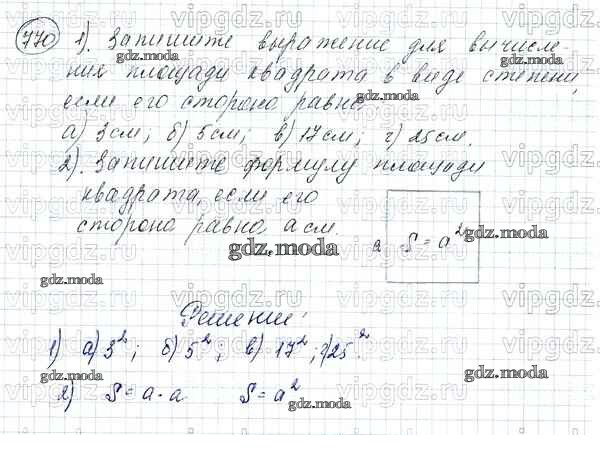 770 1). Запишите выражение для вычисле-
ния площади квадрата в виде степени,
если его сторона равна
а) 3см; б) 5см; в) 17см; г) 25см.
2). Запишите формулу площади
квадрата, если его
сторона равна a см.
a S = a²
Решение:
1) а) 3²; б) 5²; в) 17²; г) 25².
2) S = a · a S = a²
gdz.moda
vipgdz.ru